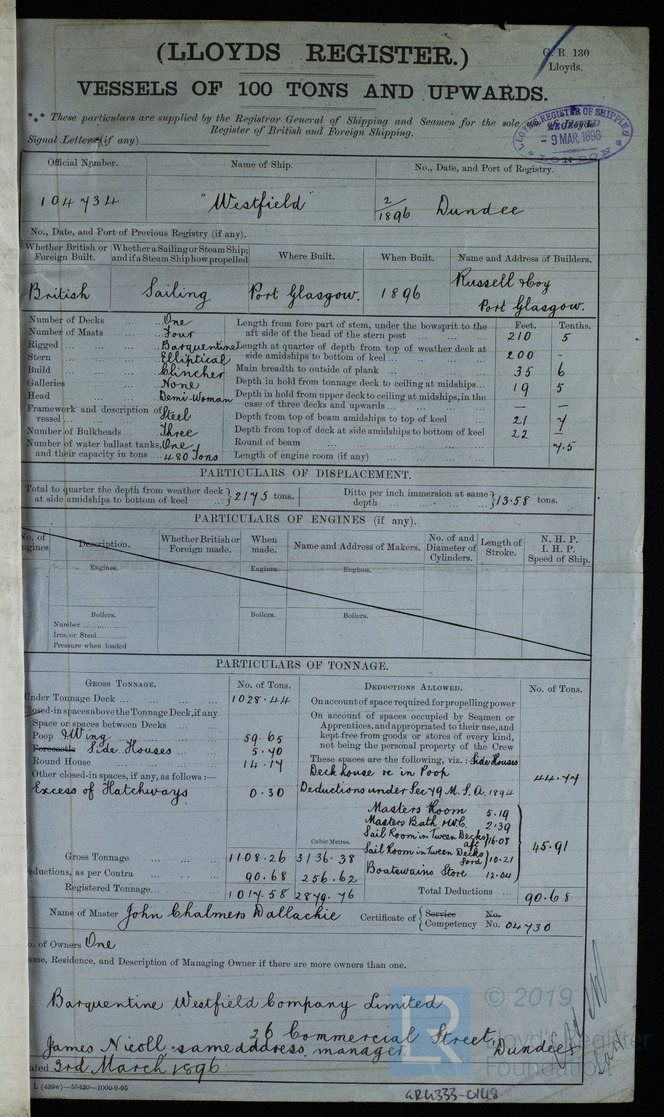 (LLOYDS REGISTER.)
G. R. 130
Lloyds.
VESSELS OF 100 TONS AND UPWARDS.
*** These particulars are supplied by the Registrar General of Shipping and Seamen for the sole
Register of British and Foreign Shipping.
LLOYD'S REGISTER OF SHIPPING
- 9 MAR. 1896
LONDON
Signal Letters (if any)
Official Number. Name of Ship. No., Date, and Port of Registry.
104734 "Westfield" 2/1896 Dundee
No., Date, and Port of Previous Registry (if any).
Whether British or Foreign Built. Whether a Sailing or Steam Ship; and if a Steam Ship how propelled Where Built. When Built. Name and Address of Builders.
British Sailing Port Glasgow. 1896 Russell & Coy
Port Glasgow.
Feet. Tenths.
Number of Decks One
Number of Masts Four
Rigged Barquentine
Stern Elliptical
Build Clincher
Galleries None
Head Demi Woman
Framework and description of vessel Steel
Number of Bulkheads Three
Number of water ballast tanks, One
and their capacity in tons 480 Tons
Length from fore part of stem, under the bowsprit to the aft side of the head of the stern post 210 5
Length at quarter of depth from top of weather deck at side amidships to bottom of keel 200 -
Main breadth to outside of plank 35 6
Depth in hold from tonnage deck to ceiling at midships 19 5
Depth in hold from upper deck to ceiling at midships, in the case of three decks and upwards — —
Depth from top of beam amidships to top of keel 21 7
Depth from top of deck at side amidships to bottom of keel 22 -
Round of beam 7.5
Length of engine room (if any)
PARTICULARS OF DISPLACEMENT.
Total to quarter the depth from weather deck at side amidships to bottom of keel } 2175 tons. Ditto per inch immersion at same depth } 13.58 tons.
PARTICULARS OF ENGINES (if any).
No. of Engines Description. Whether British or Foreign made. When made. Name and Address of Makers. No. of and Diameter of Cylinders. Length of Stroke. N. H. P. I. H. P. Speed of Ship.
Engines. Engines. Engines.
Boilers. Boilers. Boilers.
Number
Iron or Steel
Pressure when loaded
PARTICULARS OF TONNAGE.
GROSS TONNAGE. No. of Tons. DEDUCTIONS ALLOWED. No. of Tons.
Under Tonnage Deck 1028.44
Closed-in spaces above the Tonnage Deck, if any
Space or spaces between Decks
Poop & Wing 59.65
Forecastle Side Houses 5.70
Round House 14.17
Other closed-in spaces, if any, as follows :—
Excess of Hatchways 0.30
On account of space required for propelling power
On account of spaces occupied by Seamen or Apprentices, and appropriated to their use, and kept free from goods or stores of every kind, not being the personal property of the Crew
These spaces are the following, viz. : Side Houses
Deck house & in Poop 44.77
Deductions under Sec 79 M.S.A. 1894
Masters Room 5.19
Masters Bath & W.C. 2.39
Sail Room in Tween Decks aft 16.08
Sail Room in Tween Decks ford 10.21
Boatswains Store 12.04
45.91
Cubic Metres.
Gross Tonnage 1108.26 3136.38
Deductions, as per Contra 90.68 256.62
Registered Tonnage 1017.58 2879.76
Total Deductions 90.68
Name of Master John Chalmers Dallachie Certificate of { Service No.
Competency No. 04730
No. of Owners One
Name, Residence, and Description of Managing Owner if there are more owners than one.
Barquentine Westfield Company Limited
26 Commercial Street,
James Nicoll same address manager Dundee
Dated 3rd March 1896
L (439w)—55420—1000-9-95
GRG333-0148
LR
© 2019
Lloyd's Register
Foundation